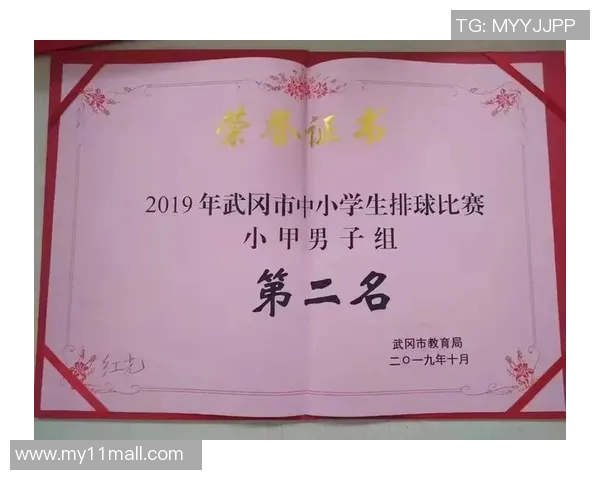 TG: MYYJJPP
荣誉证书
2019年武冈市中小学生排球比赛
小甲男子组
第二名
武冈市教育局
二〇一九年十月
红光
www.my11mall.com